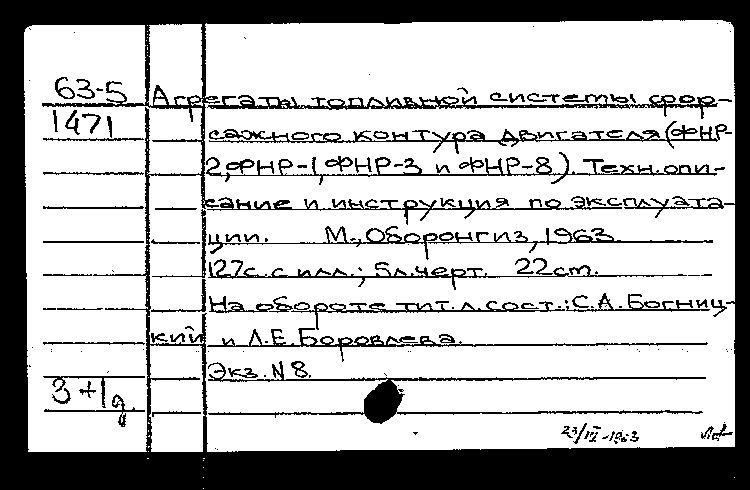 63-5 Агрегаты топливной системы фор-
1471 сажного контура двигателя (ФНР-
2, ФНР-1, ФНР-3 и ФНР-8). Техн. опи-
сание и инструкция по эксплуата-
ции. М., Оборонгиз, 1963.
127с. с илл.; 5л. черт. 22cm.
На обороте тит. л. сост.: С.А. Богниц-
кий и Л.Е. Боровлева.
Экз. N 8.
3+1д.
23/III-1963